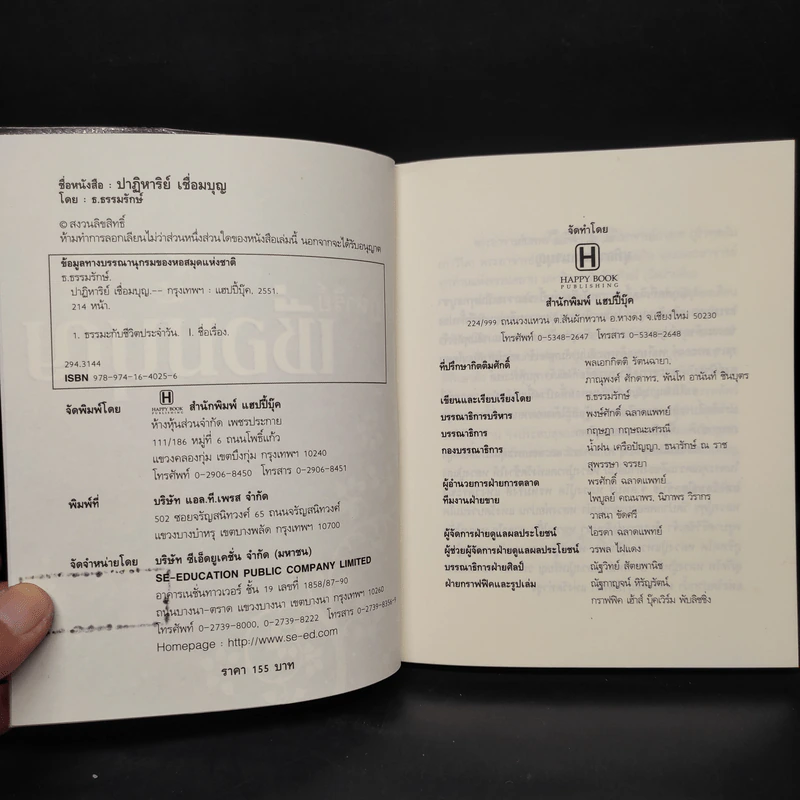 ชื่อหนังสือ : ปาฏิหาริย์ เชื่อมบุญ
โดย : ธ.ธรรมรักษ์
© สงวนลิขสิทธิ์
ห้ามทำการลอกเลียนไม่ว่าส่วนหนึ่งส่วนใดของหนังสือเล่มนี้ นอกจากจะได้รับอนุญาต
ข้อมูลทางบรรณานุกรมของหอสมุดแห่งชาติ
ธ.ธรรมรักษ์.
ปาฏิหาริย์ เชื่อมบุญ.-- กรุงเทพฯ : แฮปปี้บุ๊ค, 2551.
214 หน้า.
1. ธรรมะกับชีวิตประจำวัน. I. ชื่อเรื่อง.
294.3144
ISBN 978-974-16-4025-6
จัดพิมพ์โดย H HAPPY BOOK PUBLISHING สำนักพิมพ์ แฮปปี้บุ๊ค
ห้างหุ้นส่วนจำกัด เพชรประกาย
111/186 หมู่ที่ 6 ถนนโพธิ์แก้ว
แขวงคลองกุ่ม เขตบึงกุ่ม กรุงเทพฯ 10240
โทรศัพท์ 0-2906-8450 โทรสาร 0-2906-8451
พิมพ์ที่ บริษัท แอล.ที.เพรส จำกัด
502 ซอยจรัญสนิทวงศ์ 65 ถนนจรัญสนิทวงศ์
แขวงบางบำหรุ เขตบางพลัด กรุงเทพฯ 10700
จัดจำหน่ายโดย บริษัท ซีเอ็ดยูเคชั่น จำกัด (มหาชน)
SE-EDUCATION PUBLIC COMPANY LIMITED
อาคารเนชั่นทาวเวอร์ ชั้น 19 เลขที่ 1858/87-90
ถนนบางนา-ตราด แขวงบางนา เขตบางนา กรุงเทพฯ 10260
โทรศัพท์ 0-2739-8000, 0-2739-8222 โทรสาร 0-2739-8356-9
Homepage : http://www.se-ed.com
ราคา 155 บาท
จัดทำโดย
H
HAPPY BOOK
PUBLISHING
สำนักพิมพ์ แฮปปี้บุ๊ค
224/999 ถนนวงแหวน ต.สันผักหวาน อ.หางดง จ.เชียงใหม่ 50230
โทรศัพท์ 0-5348-2647 โทรสาร 0-5348-2648
ที่ปรึกษากิตติมศักดิ์ พลเอกกิตติ รัตนฉายา,
ภาณุพงศ์ ศักดาทร, พันโท อานันท์ ชินบุตร
เขียนและเรียบเรียงโดย ธ.ธรรมรักษ์
บรรณาธิการบริหาร พงษ์ศักดิ์ ฉลาดแพทย์
บรรณาธิการ กฤษฎา กฤษณะเศรณี
กองบรรณาธิการ น้ำฝน เครือปัญญา, ธนารักษ์ ณ ราช
สุพรรษา จรรยา
ผู้อำนวยการฝ่ายการตลาด พรศักดิ์ ฉลาดแพทย์
ทีมงานฝ่ายขาย ไพบูลย์ คณนาพร, นิภาพร วิรากร
วาสนา ขัดศรี
ผู้จัดการฝ่ายดูแลผลประโยชน์ ไอรดา ฉลาดแพทย์
ผู้ช่วยผู้จัดการฝ่ายดูแลผลประโยชน์ วรพล ไฝแดง
บรรณาธิการฝ่ายศิลป์ ณัฐวิทย์ สัตยพานิช
ฝ่ายกราฟฟิคและรูปเล่ม ณัฐกาญจน์ หิรัญรัตน์,
กราฟฟิค เฮ้าส์ บุ๊คเวิร์ม พับลิชชิ่ง